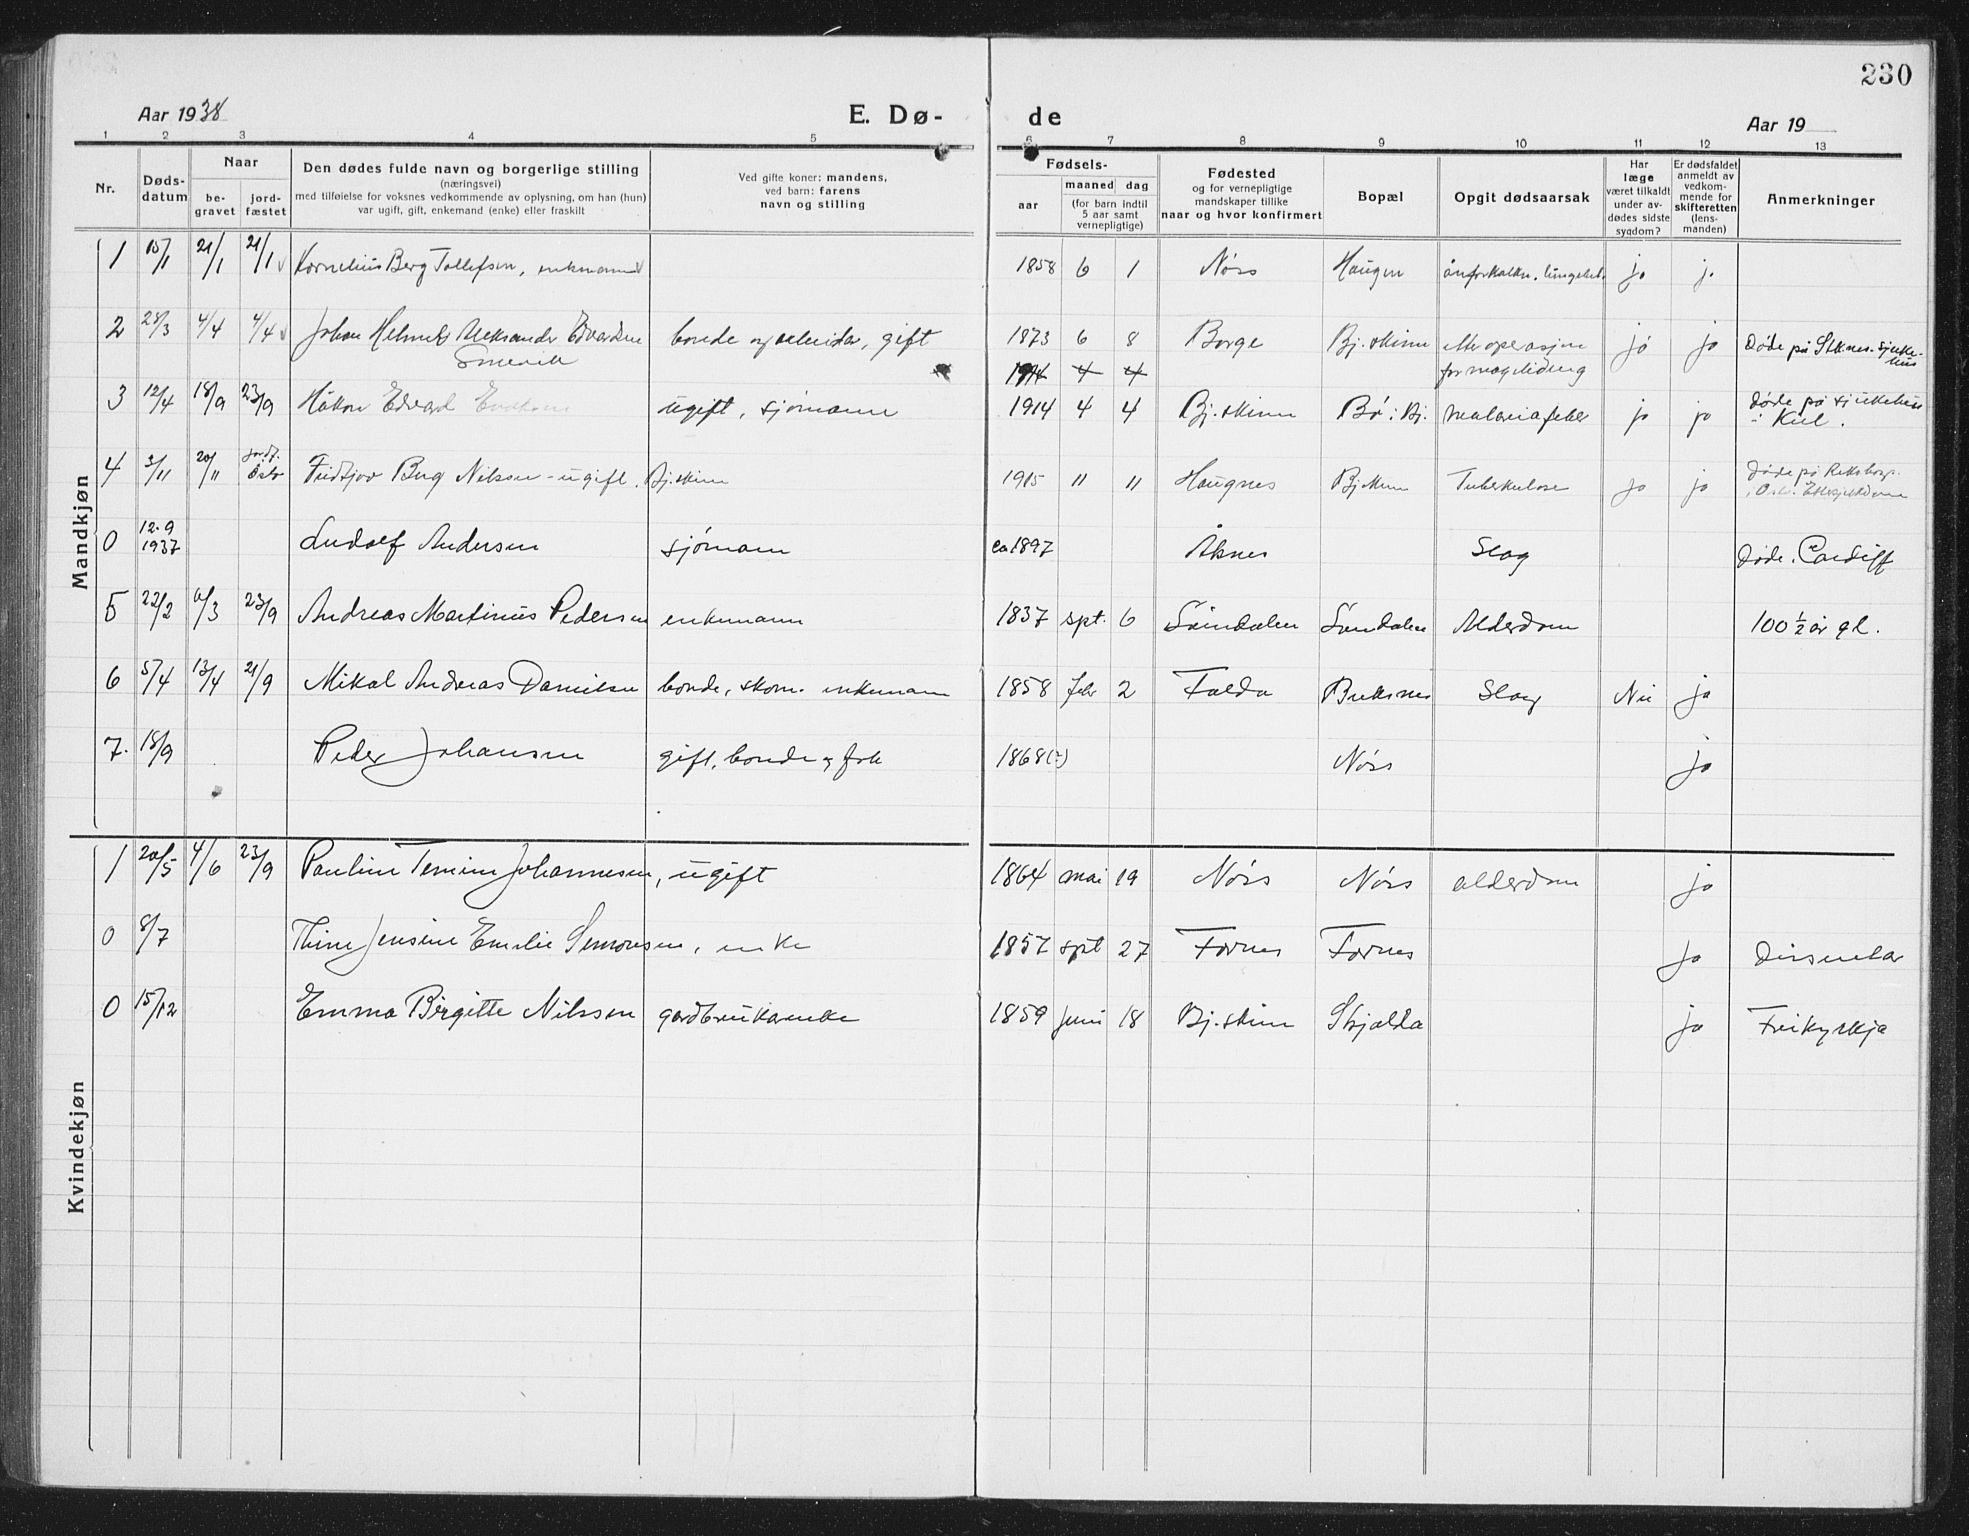 230
Aar 1938
E. Dø-
de
Aar 19
1 2 3 4 5 6 7 8 9 10 11 12 13
Nr.
Døds-
datum
Naar
be-
gravet
jord-
fæstet
Den dødes fulde navn og borgerlige stilling
(næringsvei)
med tilføielse for voksnes vedkommende av oplysning, om han (hun)
var ugift, gift, enkemand (enke) eller fraskilt
Ved gifte koner: mandens,
ved barn: farens
navn og stilling
Fødsels-
aar
maaned dag
(for barn indtil
5 aar samt
vernepligtige)
Fødested
og for vernepligtige
mandskaper tillike
naar og hvor konfirmert
Bopæl
Opgit dødsaarsak
Har
læge
været tilkaldt
under av-
dødes sidste
sygdom?
Er dødsfaldet
anmeldt av
vedkom-
mende for
skifteretten
(lens-
manden)
Anmerkninger
Mandkjøn
1 15/1 21/1 21/1 Kornelius Berg Tollefsen, enkmann 1858 6 1 Nóss Haugen ja ja
2 28/3 4/4 4/4 Johan Helmer Aleksander Edvardsen bonde og arbeider, gift 1873 6 8 Borge Bj.skinn etter operasjon ja ja Døde på Stknes. sjuke-
hus
1914 4 4 for magelidelse
3 12/4 18/9 23/9 Håkon Edvard ugift, sjømann 1914 4 4 Bj.skinn Bø i Bj. malariafeber ja ja Døde på sjukehus
i Kiel.
4 3/11 20/11 jordf.
Oslo Fridtjov Berg Nilssen - ugift. Bj.skinn 1915 11 11 Haugnes Bj.skinn Tuberkulose ja ja Døde på Rikshosp.
0 12.9
1937 Ludolf Andersen sjømann ca 1897 Åknes Slag Døde i Cardiff
5 22/2 6/3 23/9 Andreas Martinus Pedersen enkemann 1837 spt. 6 Sóindalen Sóndalen Alderdom 100 ½ år gl.
6 5/4 13/4 21/9 Mikal Andreas Danielsen bonde, skom. enkemann 1858 febr 2 Folda Buksnes Slag Nei ja
7. 18/9 Peder Johansen gift, bonde og fisk 1868(?) Nóss ja
Kvindekjøn
1 20/5 4/6 23/9 Pauline Temine Johannesen, ugift 1864 mai 19 Nóss Nóss alderdom ja
0 8/7 Thine Jensine Emelie Simonsen, enke 1857 spt 27 Fornes Fornes ja Dissenter
0 15/12 Emma Birgitte Nilssen gardbrukarenke 1859 juni 18 Bj.skinn Skjolda ja Frikyrkja